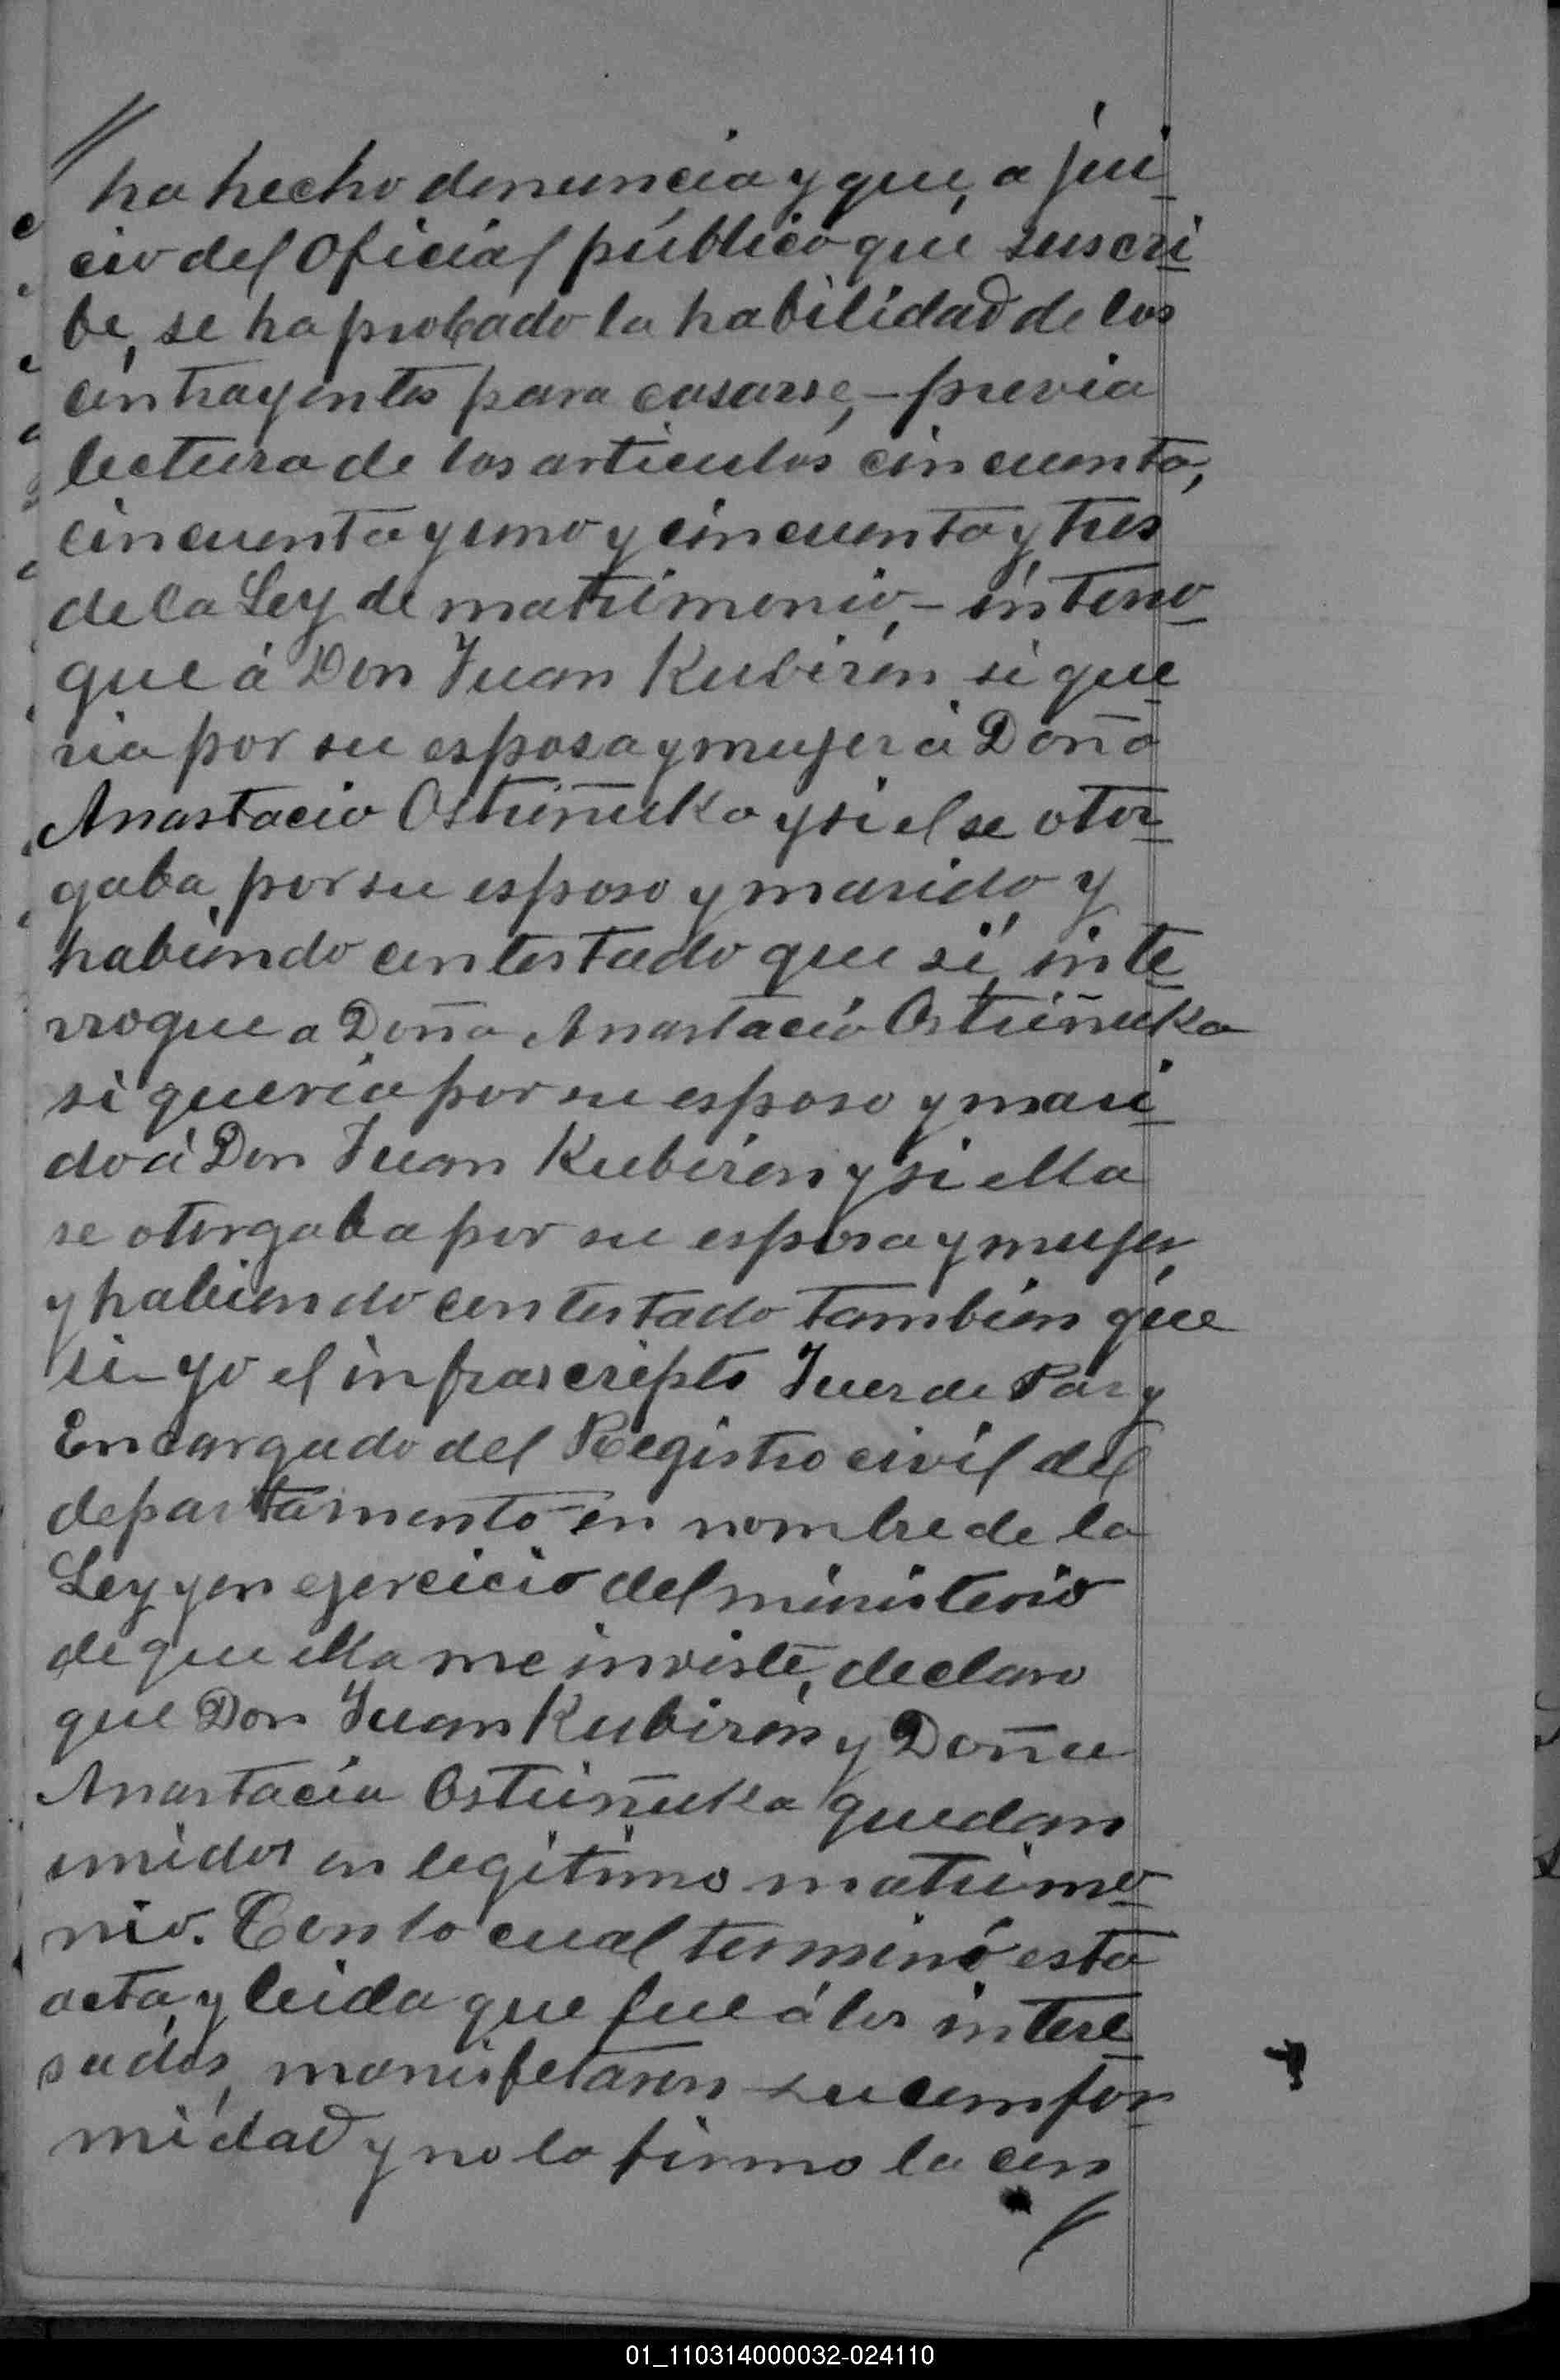 // ha hecho denuncia y que, a jui
cio del Oficial público que suscri
be, se ha probado la habilidad de los
contrayentes para casarse, - previa
lectura de los articulos cincuenta,
cincuenta y uno y cincuenta y tres
de la Ley de matrimonio, - interro
gue á Don Juan Kubirén si que
ria por su esposa y mujer á Doña
Anastacia Ostriñuka y si el se otor
gaba por su esposo y marido, y
habiendo contestado que si, inte
rrogue a Doña Anastacia Ostriñuka
si queria por su esposo y mari
do á Don Juan Kubiren y si ella
se otorgaba por su esposa y mujer,
y habiendo contestado tambien que
si - yo el infrascripto Juez de Paz y
Encargado del Registro civil del
departamento en nombre de la
Ley y en ejercicio del ministerio
de que ella me inviste, declaro
que Don Juan Kubirén y Doña
Anastacia Ostriñuka quedan
unidos en legitimo matrimo
nio. Con lo cual terminó esta
acta, y leida que fue á los intere
sados, manisfetaron su confor
midad y no la firmo la con
//
01_110314000032-024110